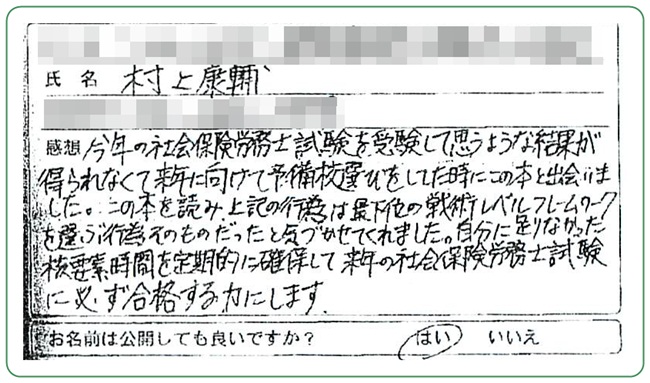 氏 名 村上康輔
感想 今年の社会保険労務士試験を受験して思うような結果が
得られなくて来年に向けて予備校選びをした時にこの本と出会いま
した。この本を読み、上記の行為は最下位の戦術レベルフレームワーク
を選ぶ行為そのものだったと気づかせてくれました。自分に足りなかった
核要素時間を定期的に確保して来年の社会保険労務士試験
に必ず合格する力にします。
お名前は公開しても良いですか? はい いいえ